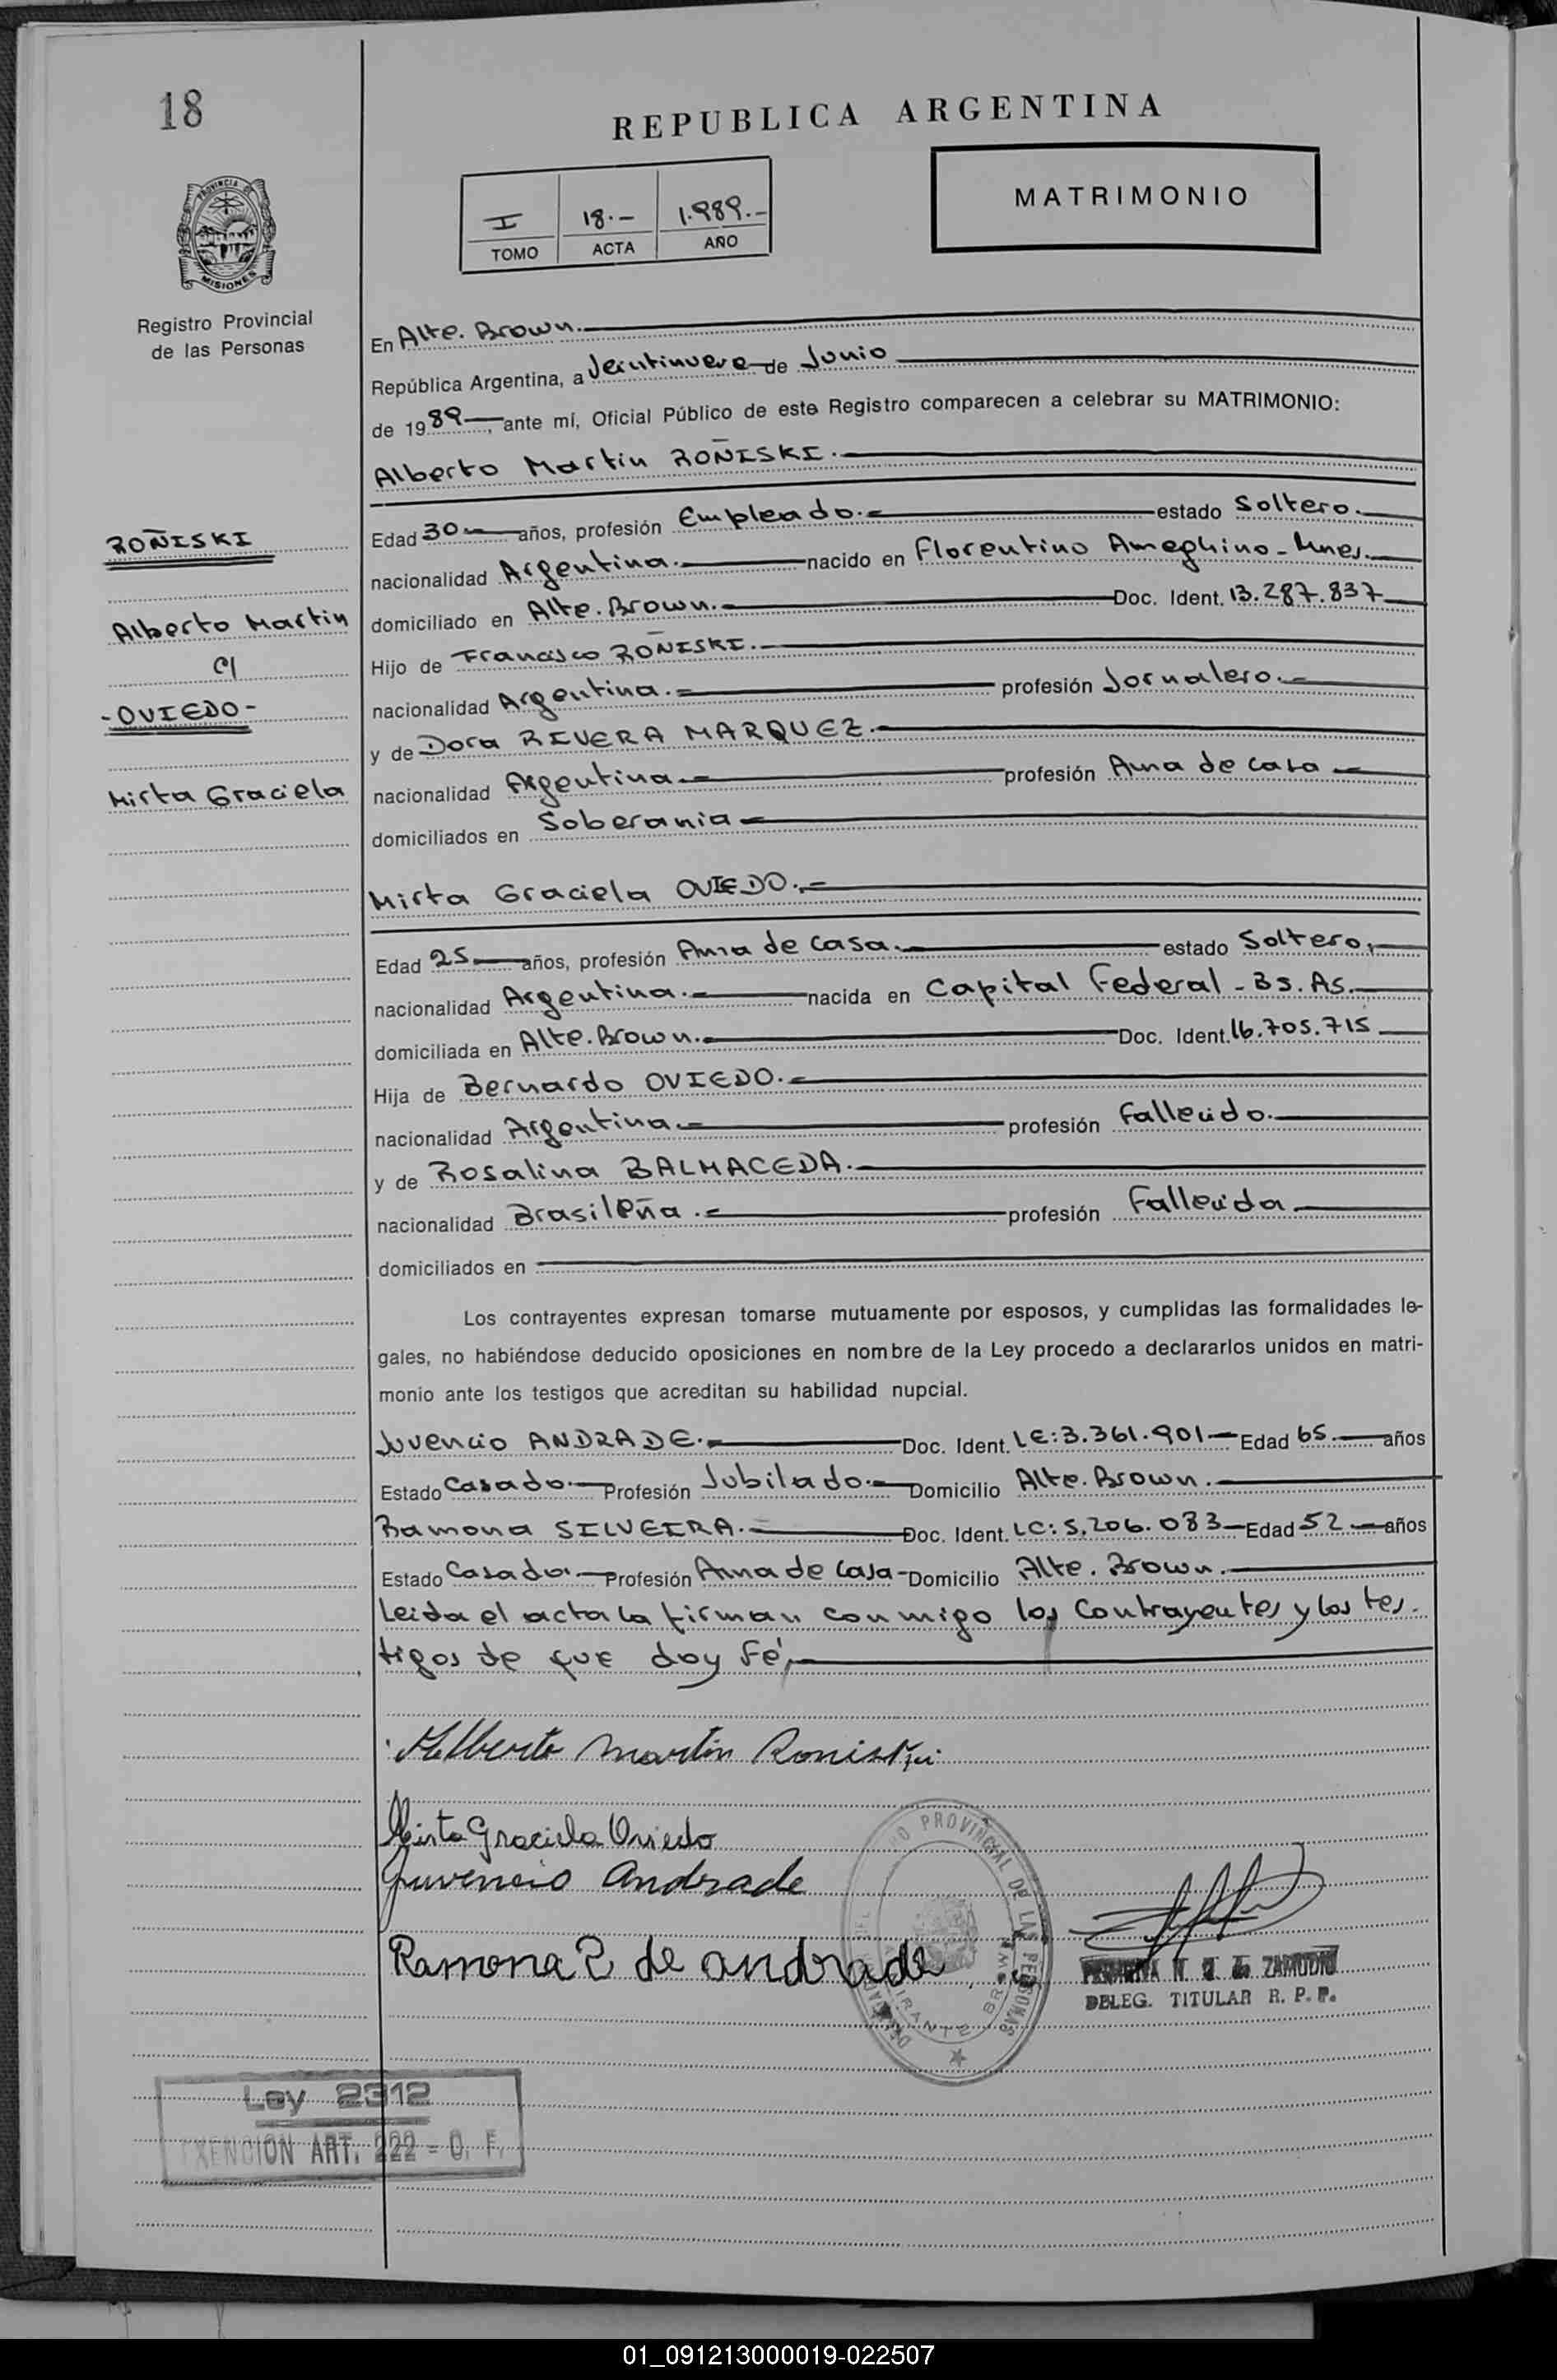 18
REPUBLICA ARGENTINA
I 18.- 1.989.-
TOMO ACTA AÑO
MATRIMONIO
PROVINCIA DE
MISIONES
Registro Provincial
de las Personas
En Alte. Brown.
República Argentina, a Veintinueve de Junio
de 1989, ante mí, Oficial Público de este Registro comparecen a celebrar su MATRIMONIO:
Alberto Martin ROÑISKI.
ROÑISKI
Alberto Martin
c/
-OVIEDO-
Mirta Graciela
Edad 30 años, profesión Empleado.- estado Soltero.
nacionalidad Argentina.- nacido en Florentino Ameghino - Mnes.
domiciliado en Alte. Brown.- Doc. Ident. 13.287.837
Hijo de Francisco ROÑISKI.
nacionalidad Argentina.- profesión Jornalero.-
y de Dora RIVERA MARQUEZ.
nacionalidad Argentina.- profesión Ama de casa
domiciliados en Soberania
Mirta Graciela OVIEDO.-
Edad 25 años, profesión Ama de casa. estado Soltero.
nacionalidad Argentina.- nacida en Capital Federal - Bs. As.
domiciliada en Alte. Brown.- Doc. Ident. 16.705.715
Hija de Bernardo OVIEDO.-
nacionalidad Argentina.- profesión Fallecido.
y de Rosalina BALMACEDA.
nacionalidad Brasileña.- profesión Fallecida
domiciliados en
Los contrayentes expresan tomarse mutuamente por esposos, y cumplidas las formalidades le-
gales, no habiéndose deducido oposiciones en nombre de la Ley procedo a declararlos unidos en matri-
monio ante los testigos que acreditan su habilidad nupcial.
Juvencio ANDRADE.- Doc. Ident. LE: 3.361.901 Edad 65. años
Estado Casado. Profesión Jubilado.- Domicilio Alte. Brown.
Ramona SILVEIRA.- Doc. Ident. LC: 5.206.083 Edad 52 años
Estado Casada. Profesión Ama de Casa - Domicilio Alte. Brown.
Leida el acta la firman conmigo los Contrayentes y los tes-
tigos de que doy Fé,
Alberto Martin Roniski
Mirta Graciela Oviedo
Juvencio Andrade
Ramona S de andrade
PROVINCIAL DE LAS PERSONAS
ZAMUDIO
DELEG. TITULAR R. P. P.
Ley 2312
EXENCION ART. 222 = C. F.
01_091213000019-022507